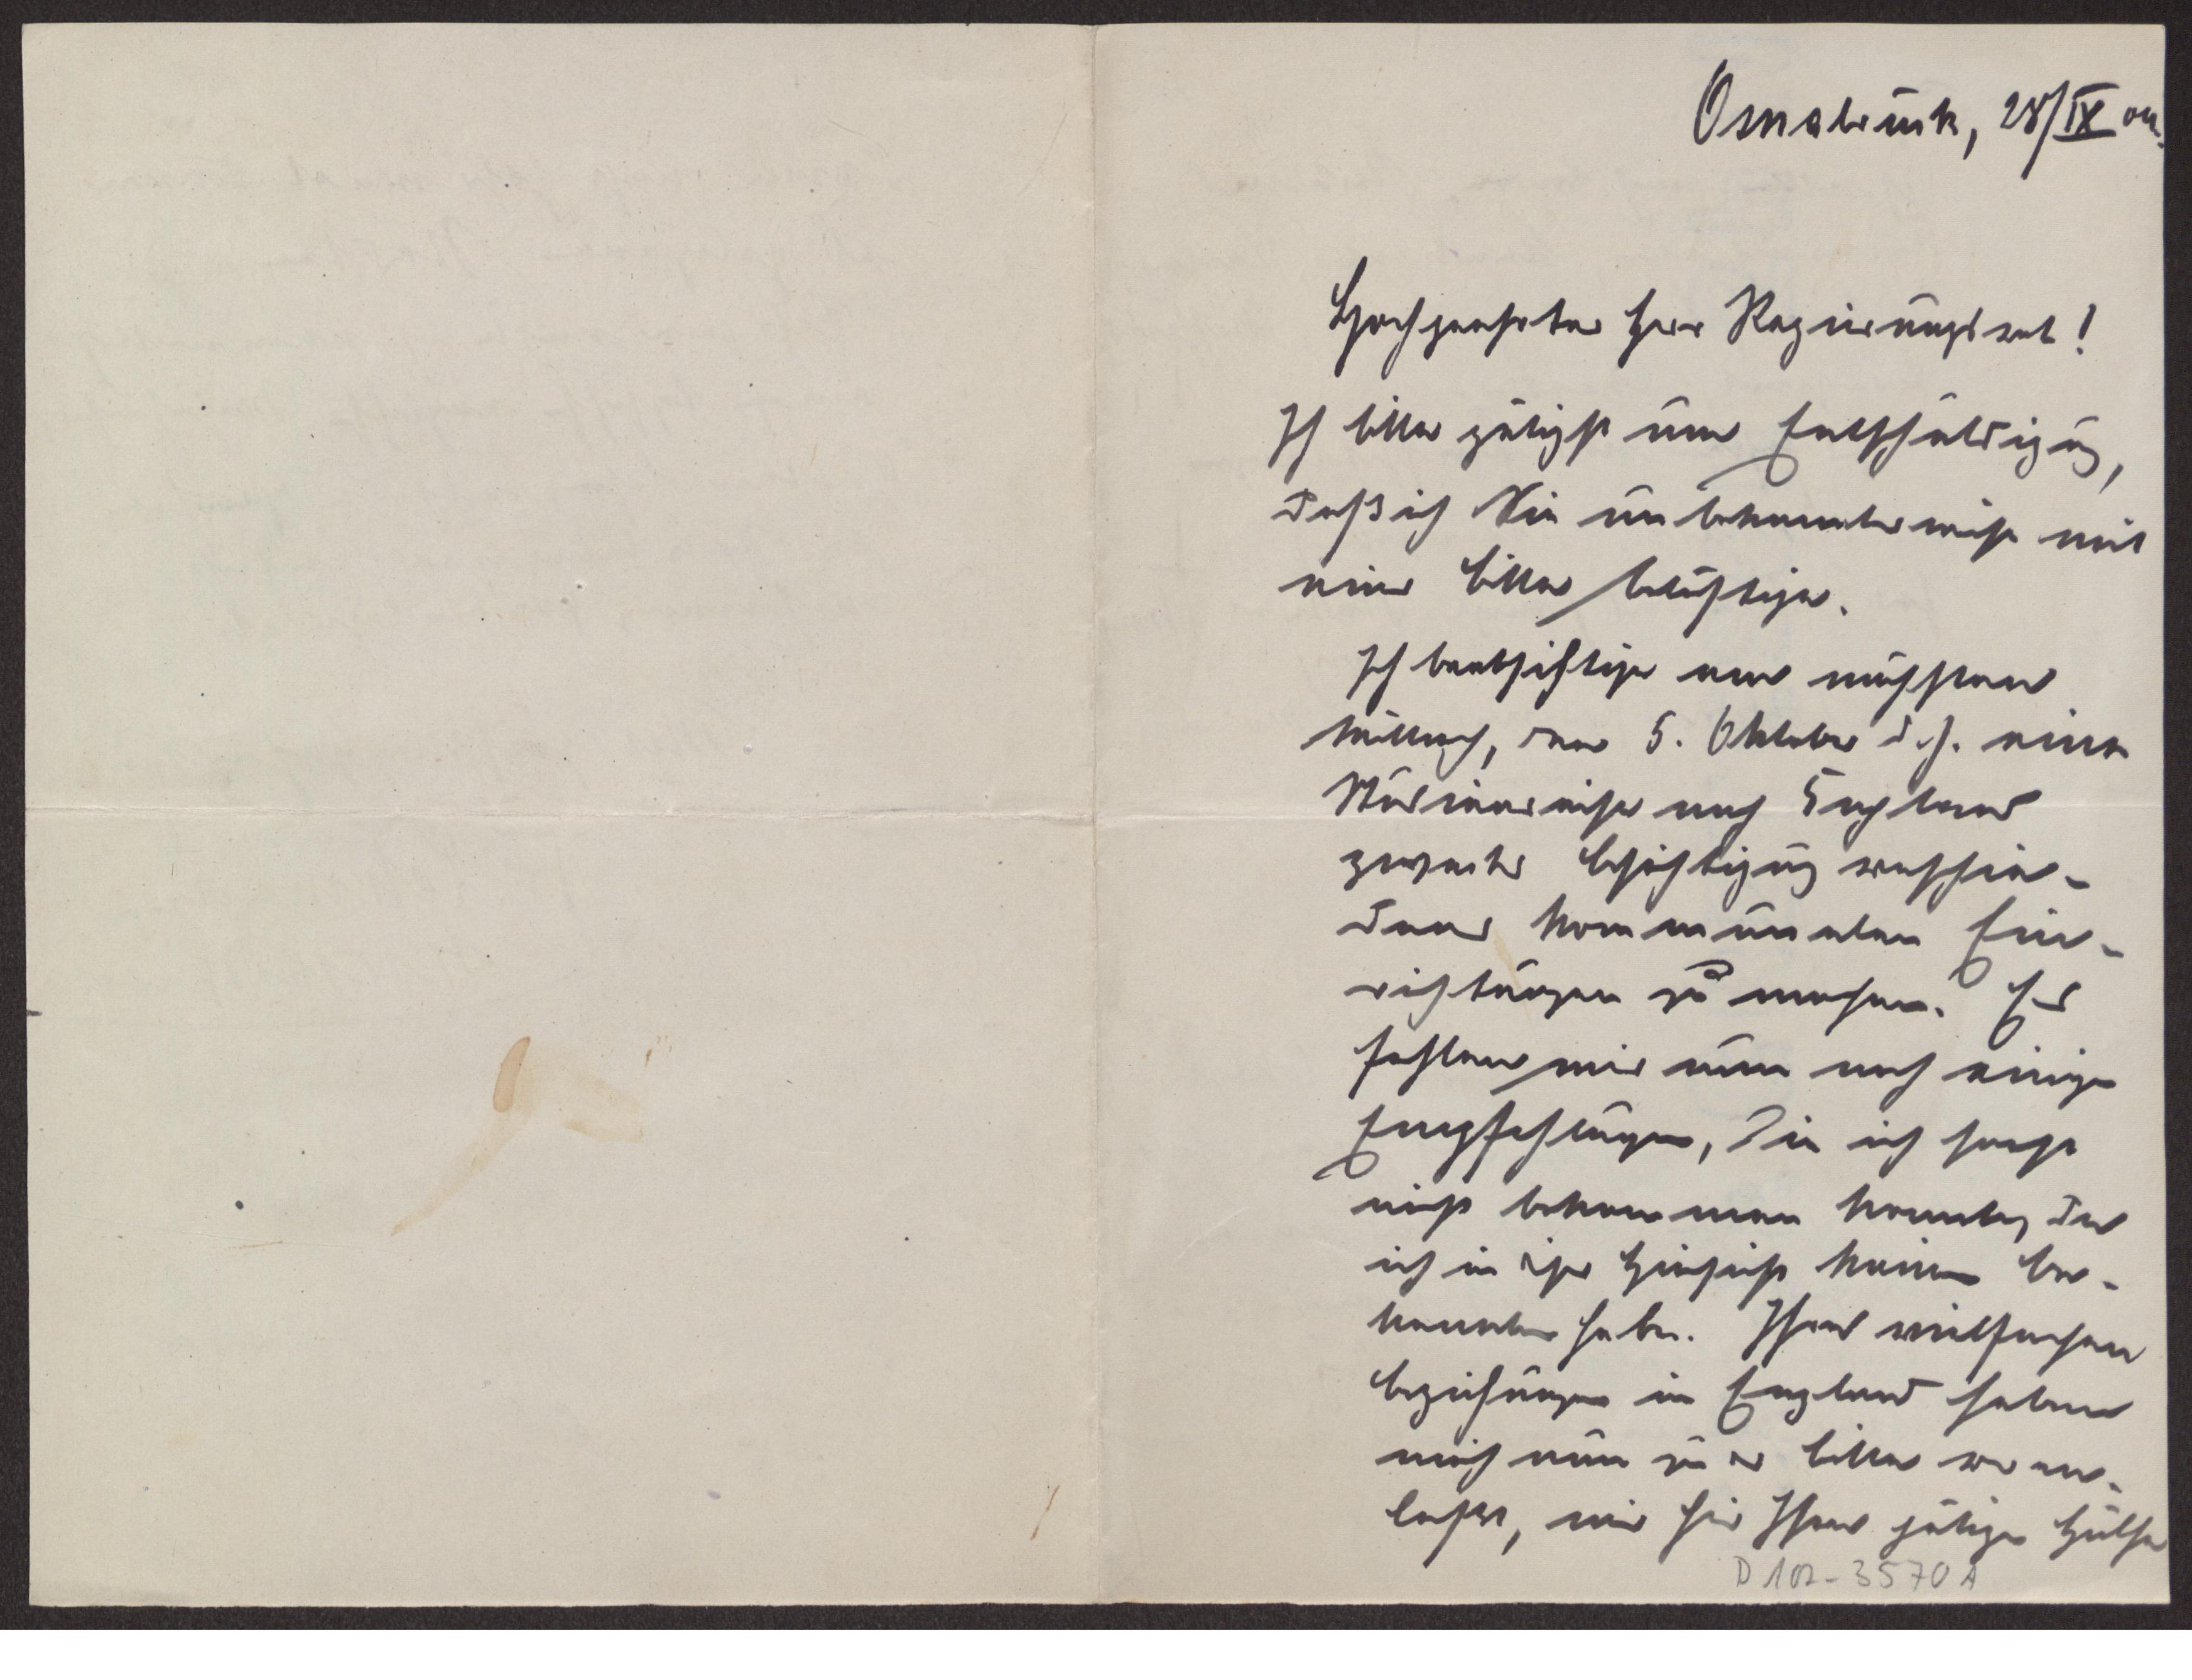 Osnabrück, 28/IX 04.
Hochgeehrter Herr Regierungsrat!
Ich bitte gütigst um Entschuldigung,
daß ich Sie unbekannterweise mit
einer Bitte belästige.
Ich beabsichtige am nächsten
Mittwoch, den 5. Oktober d. J. eine
Studienreise nach England
zwecks Besichtigung verschie-
dener kommunalen Ein-
richtungen zu machen. Es
fehlen mir nun noch einige
Empfehlungen, die ich sonst
nicht bekommen konnte, da
ich in der Hinsicht keine Be-
kannten habe. Ihre vielfachen
Beziehungen in England haben
mich nun zu der Bitte veran-
laßt, mir hier Ihre gütige Hülfe
D 102-3570 A